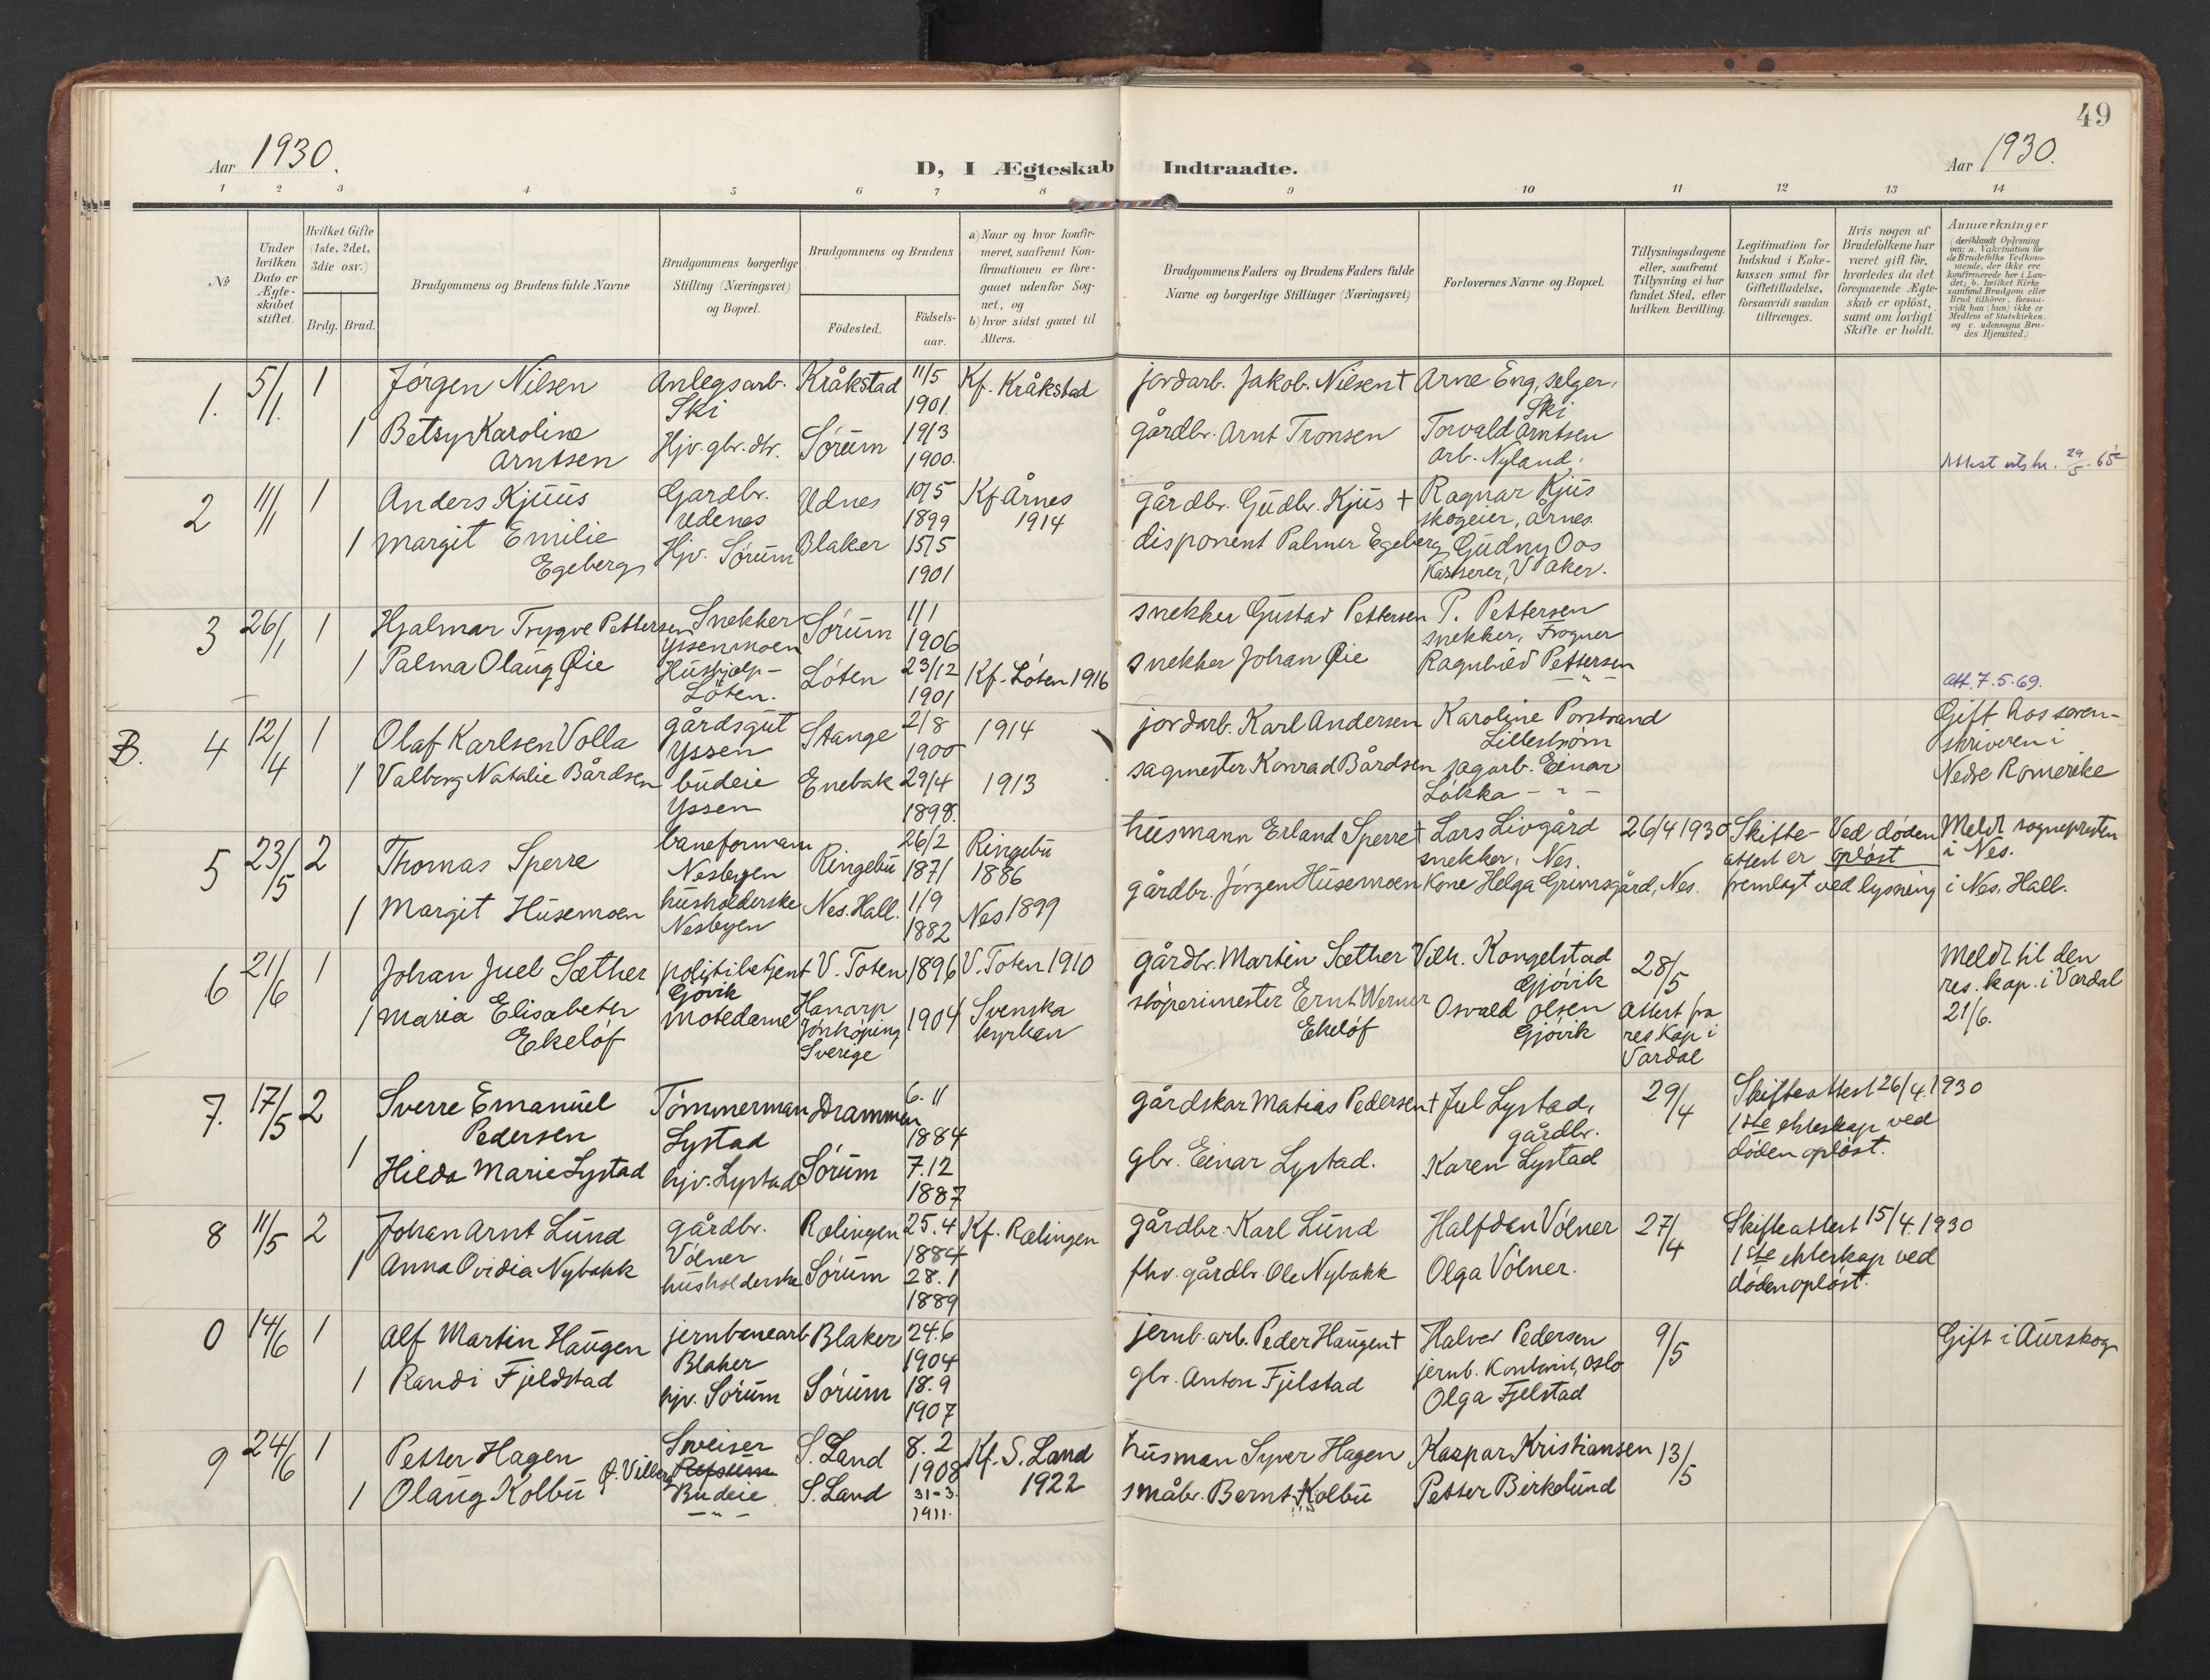 49
Aar 1930.
D, I Ægteskab Indtraadte.
Aar 1930.
1 2 3 4 5 6 7 8 9 10 11 12 13 14
No
Under hvilken Dato er Ægteskabet stiftet.
Hvilket Gifte (1ste, 2det, 3die osv.)
Brdg. Brud.
Brudgommens og Brudens fulde Navne
Brudgommens borgerlige Stilling (Næringsvei) og Bopæl.
Brudgommens og Brudens
Födested.
Födsels-aar.
a) Naar og hvor konfirmeret, saafremt Konfirmationen er foregaaet udenfor Sognet, og
b) hvor sidst gaaet til Alters.
Brudgommens Faders og Brudens Faders fulde Navne og borgerlige Stillinger (Næringsvei)
Forlovernes Navne og Bopæl.
Tillysningsdagene eller, saafremt Tillysning ei har fundet Sted, efter hvilken Bevilling.
Legitimation for Indskud i Enkekassen samt for Giftetilladelse, forsaavidt saadan tiltrænges.
Hvis nogen af Brudefolkene har været gift för, hvorledes da det foregaaende Ægteskab er oplöst, samt om lovligt Skifte er holdt.
Anmærkninger (deriblandt Oplysning om: a. Vakcination for de Brudefolks Vedkommende, der ikke ere konfirmerede her i Landet; b. hvilket Kirkesamfund Brudgom eller Brud tilhörer, forsaavidt han (hun) ikke er Medlem af Statskirken, og c. udensogns Brudes Hjemsted.)
1. 5/1. 1 Jörgen Nilsen Anlegsarb. Ski Kråkstad 11/5 1901. Kf. Kråkstad jordarb. Jakob Nilsen + Arne Eng, selger, Ski
1 Betsy Karoline Arntsen Hjv. gbr. dtr. Sörum 19/3 1900. gårdbr. Arnt Tronsen Torvald Arntsen arb. Nyland.
Attest utskr. 29/5 - 65
2 11/1 1 Anders Kjuus Gardbr. Udenes Udnes 10/5 1899 Kf Årnes 1914 gårdbr. Gudbr. Kjus + Ragnar Kjus skogeier, Årnes.
1 Margit Emilie Egeberg Hjv. Sörum Blaker 15/5 1901 disponent Palmer Egeberg Gudny Oos Kasserer, V Aker.
3 26/1 1 Hjalmar Trygve Pettersen Snekker Yssenmoen Sörum 1/1 1906 snekker Gustav Pettersen P. Pettersen snekker, Frogner
1 Palma Olaug Øie Hushjelp - Löten. Löten 23/12 1901 Kf. Löten 1916 snekker Johan Øie Ragnhild Pettersen - " -
Att. 7.5.69.
B. 4 12/4 1 Olaf Karlsen Volla gårdsgut Yssen Stange 2/8 1900 1914 jordarb. Karl Andersen Karoline Porstrand Lilleström Gift hos sorenskriveren i Nedre Romerike
1 Valborg Natalie Bårdsen budeie Yssen Enebak 29/4 1898. 1913 sagmester Konrad Bårdsen sagarb. Einar Lökka - " -
5 23/5 2 Thomas Sperre baneformann Nesbyen Ringebu 26/2 1871 Ringebu 1886 husmann Erland Sperre + Lars Livgård snekker, Nes. 26/4 1930 Skifte-attest er fremlagt ved lysning i Nes. Hall. Ved döden oplöst Meldt sognepresten i Nes.
1 Margit Husemoen husholderske Nesbyen Nes. Hall. 1/9 1882 Nes 1899 gårdbr. Jörgen Husemoen Kone Helga Grimsgård, Nes.
6 21/6 1 Johan Juel Sæther politibetjent Gjövik V. Toten 1896 V. Toten 1910 gårdbr. Martin Sæther Vilh. Kongelstad Gjövik 28/5 Attest fra res. kap. i Vardal Meldt til den res. kap. i Vardal 21/6.
1 Maria Elisabeth Ekelöf motedame Hanarp Jönköping Sverige 1904 Svenska kyrkan stöperimester Ernt Werner Ekelöf Osvald Olsen Gjövik
7. 17/5 2 Sverre Emanuel Pedersen Tömmerman Lystad Drammen 6.11 1884 gårdskar Matias Pedersen + Jul Lystad, gårdbr. 29/4 Skifteattest 26/4 1930 1ste ekteskap ved döden oplöst.
1 Hilda Marie Lystad hjv. Lystad Sörum 7.12 1887 gbr. Einar Lystad. Karen Lystad
8 11/5 2 Johan Arnt Lund gårdbr. Völner Rælingen 25.4 1884 Kf. Rælingen gårdbr. Karl Lund Halfdan Völner 27/4 Skifteattest 15/4 1930 1ste ekteskap ved döden oplöst.
1 Anna Ovidia Nybakk husholderske Sörum 28.1 1889 fhv. gårdbr. Ole Nybakk Olga Völner.
0 14/6 1 Alf Martin Haugen jernbanearb Blaker Blaker 24.6 1904 jernb. arb. Peder Haugen + Halvor Pedersen jernb. Kontorist, Oslo 9/5 Gift i Aurskog
1 Randi Fjeldstad hjv. Sörum Sörum 18.9 1907 gbr. Anton Fjelstad Olga Fjelstad
9 24/6 1 Petter Hagen Sveiser S. Land 8.2 1908 Kf. S. Land 1922 husman Syver Hagen Kaspar Kristiansen 13/5
1 Olaug Kolbu Budeie - " - S. Land 31-3. 1911. småbr. Bernt Kolbu Petter Birkelund